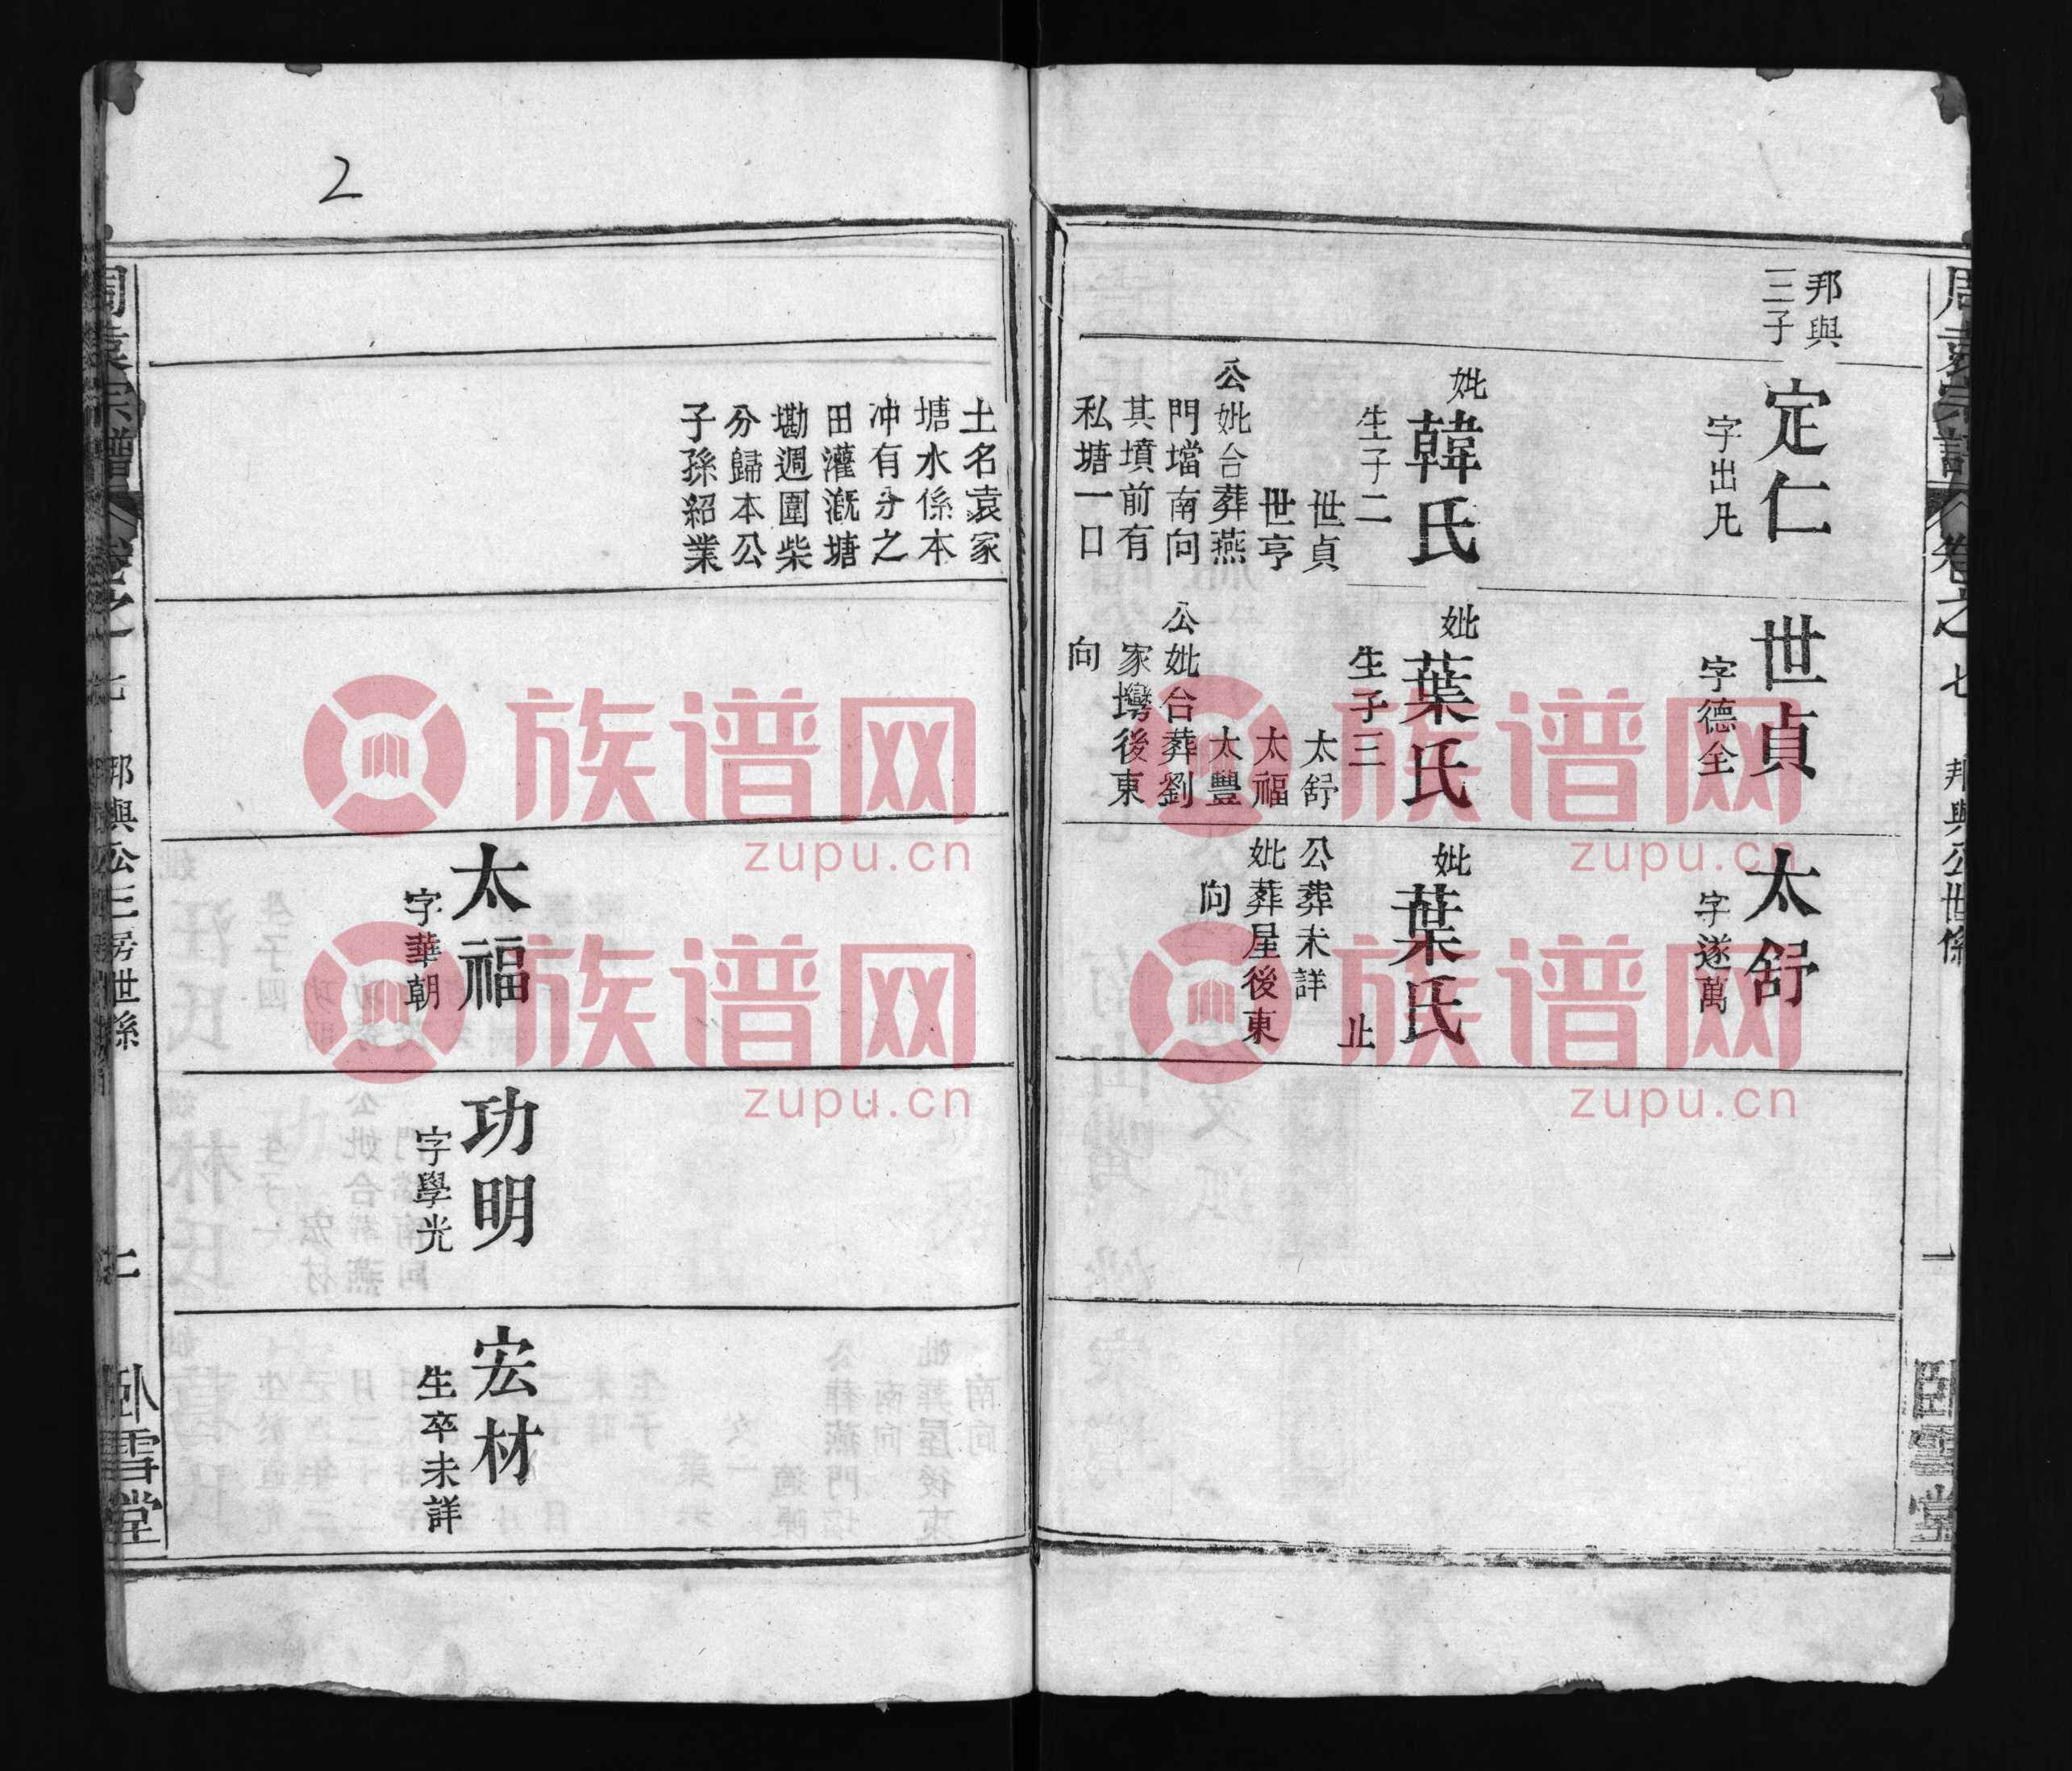 周袁宗譜
卷之七
邦與公世係
一
臥雪堂
邦與
三子
定仁
字出凡
妣韓氏
生子二
世貞
世亨
公妣台葬燕
門壋南向
其墳前有
私塘一口
世貞
字德全
妣葉氏
生子三
太舒
太福
太豐
公妣台葬劉
家塆後東
向
太舒
字遂萬
妣葉氏
止
公葬未詳
妣葬屋後東
向
2
土名袁家
塘水係本
冲有分之
田灌溉塘
墈週圍柴
分歸本公
子孫紹業
太福
字華朝
功明
字學光
宏材
生卒未詳
周袁宗譜
卷之七
邦與公三房世係
臥雪堂
族谱网
zupu.cn
族谱网
zupu.cn
族谱网
zupu.cn
族谱网
zupu.cn